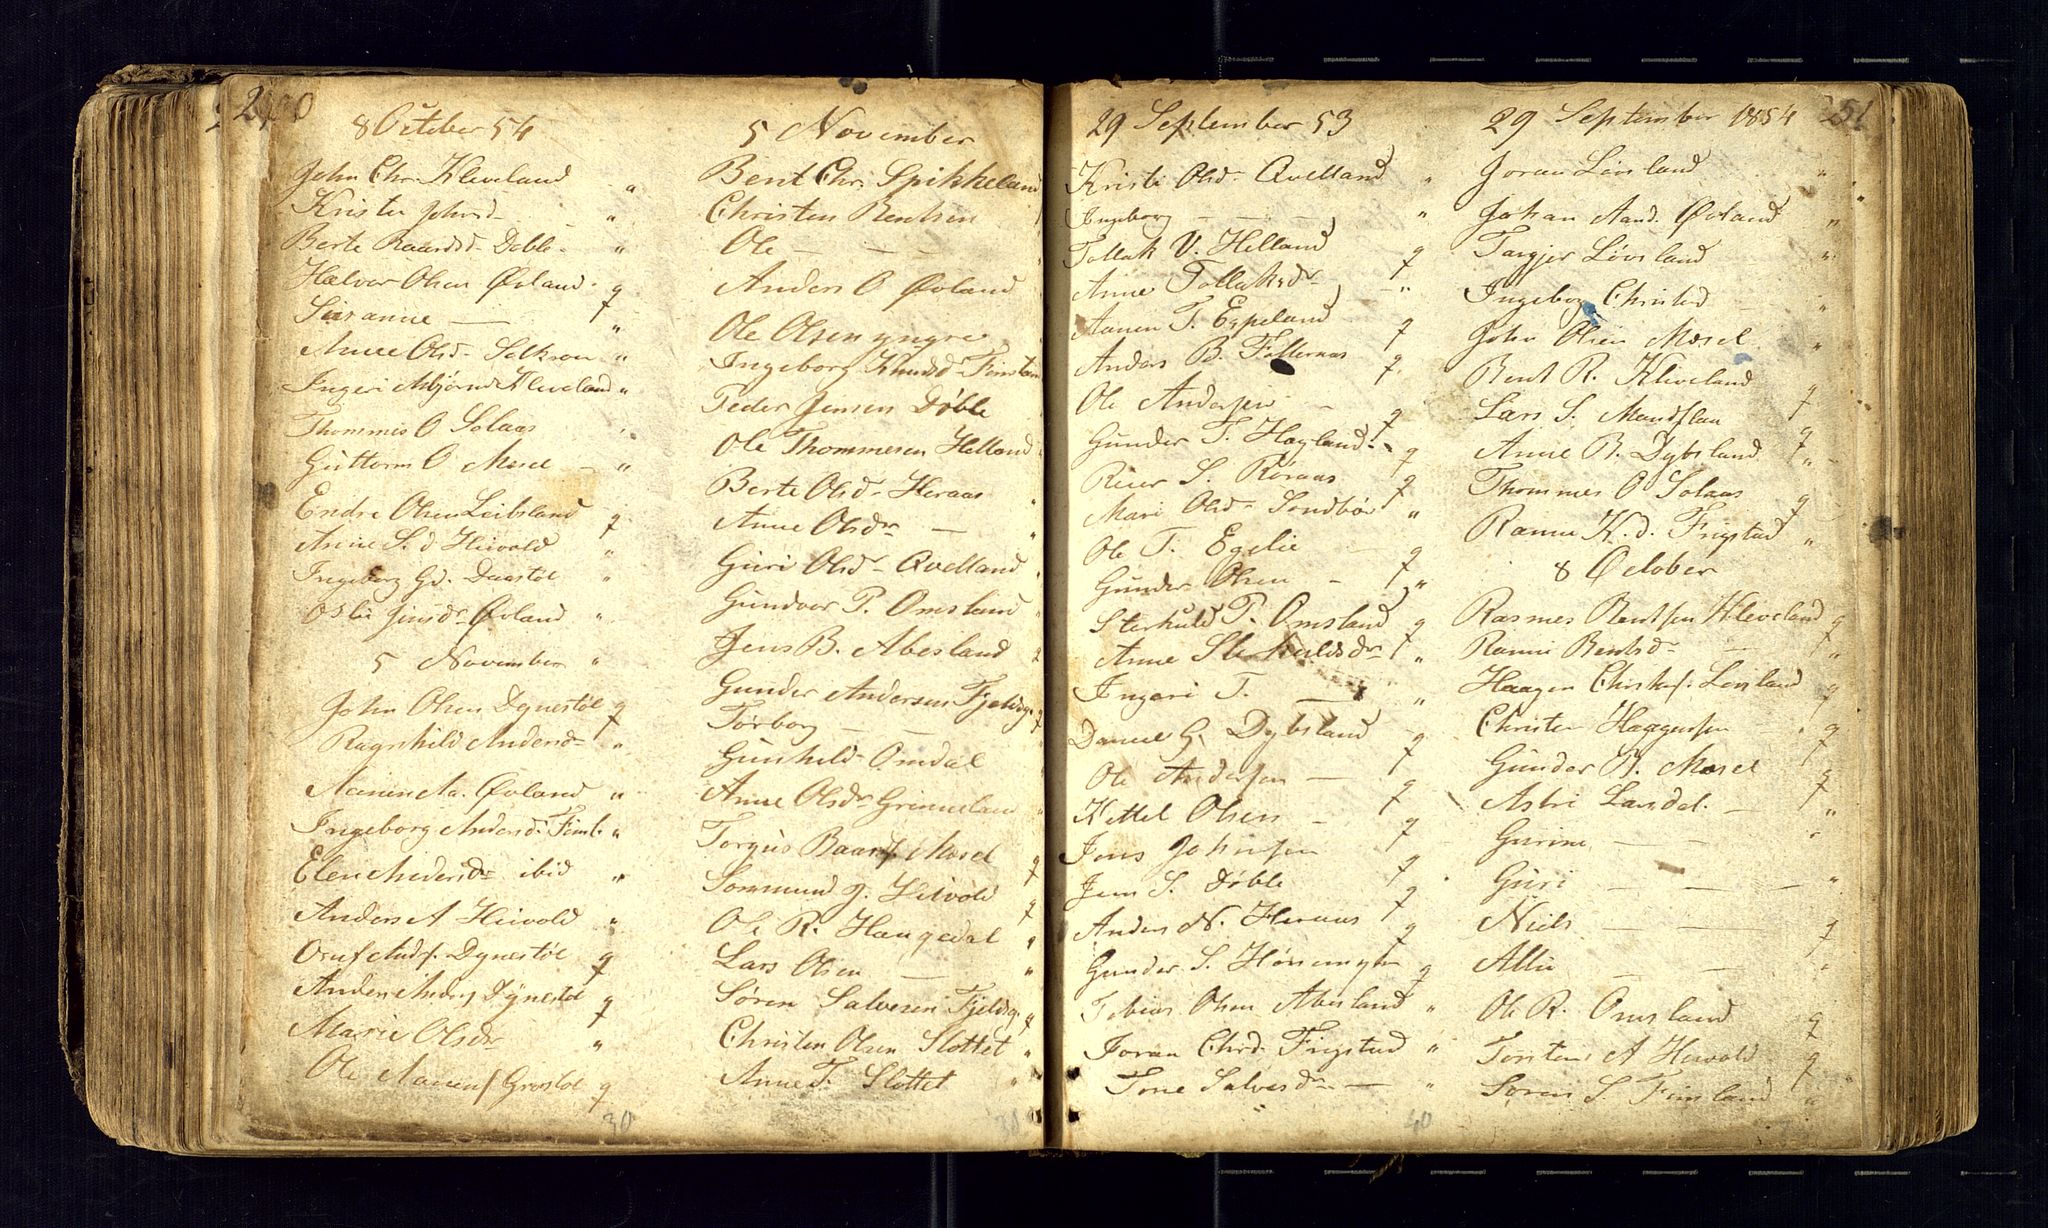 8 October 54
John Chr. Kleveland "
Kristi Johnsd "
Berte Baardsd Døble "
Halvor Olsen Øvland q
Susanne — "
Anne Olsd "
Ingeri Asbjørnsd Kleveland "
Thommes O Solaas
Guttorm O Mosel — "
Endre Olsen Leibsland q
Anne S. d Heivold "
Ingeborg Gd. "
Jensdr Øvland "
5 November "
John Olsen Dynestøl q
Ragnhild Andersd "
Aanen Aa. Øvland "
Ingeborg Andersd. Finsl. "
Elen Andersdr ibid "
Anders A Heivold "
Dynestøl q
Anders Anders Dynestøl q
Marie Olsdr "
Ole Aanens. q
30
5 November
Bent Chr. Spikkeland
Christen Bentsen
Ole — —
Anders O Øvland
Ole Olsen yngre
Ingeborg Knudsd Finsland
Peder Jensen Døble
Ole Thommesen Helland
Berte Olsd Heraas "
Anne Olsdr — "
Guri Olsd Qvelland
Gundvor P. Omsland
Jens B. Abesland q
Gunder Andersen Fjeldsg. q
Torborg — —
Gunhild Omdal
Anne Olsdr
Torgus Baards. Mosel q
Sommund G. Heivold q
Ole R. Haugedal "
Lars Olsen — "
Søren Salvesen Fjeldsg. q
Christen Olsen Slottet "
Anne T. Slottet "
251
29 September 53
Kristi Olsd Qvelland "
Ingeborg — — "
Tollak V. Helland q
Anne Tollaksdr "
Aanen T. Espeland q
Anders B. q
Ole Andersen — q
Gunder T. Hagland q
Reier S. Røraas q
Mari Olsd "
Ole T. Egelie q
Gunder Olsen — "
Sterkuld P. Omsland q
Anne Sterkuldsdr "
Ingari T. — "
Daniel G. Dybsland q
Ole Andersen — q
Kittel Olsen — q
Jens Johnsen q
Jens S. Døble q
Anders N. Heraas q
Gunder S. q
Tobias Olsen Abesland "
Joran Chrd. Frigstad "
Tone Salvesdr — "
40
29 September 1854
Joran Løvsland "
Johan Aand. Øvland "
Targjer Løvsland "
Ingeborg Christd "
John Olsen Mosel "
Bent R. Kleveland q
Lars S. q
Anne B. Dybsland "
Thommes O Solaas q
Ranni K. d. Frigstad "
8 October
Rasmus Bentsen Kleveland q
Ranni Bentsd — "
Haagen Christens. Løvsland q
Christen Haagensen q
Gunder B. Mosel q
Astri Larsd — "
Gurine — — "
Guri — — — "
Niels — — q
— — "
Ole R. Omsland q
Torsten A Heivold q
Søren S. Finsland "